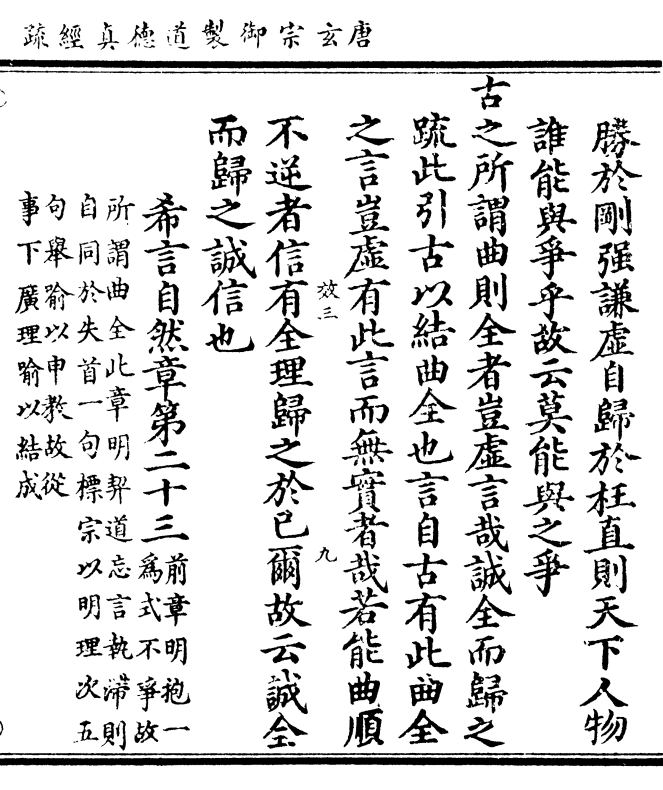 唐玄宗御製道德真經疏
勝於剛强謙虛自歸於枉直則天下人物
誰能與爭乎故云莫能與之爭
古之所謂曲則全者豈虛言哉誠全而歸之
疏此引古以結曲全也言自古有此曲全
之言豈虛有此言而無實者哉若能曲順
效三
九
不逆者信有全理歸之於己爾故云誠全
而歸之誠信也
希言自然章第二十三
前章明抱一
爲式不爭故
所謂曲全此章明契道忘言執滯則
自同於失首一句標宗以明理次五
句舉喻以申教故從
事下廣理喻以結成